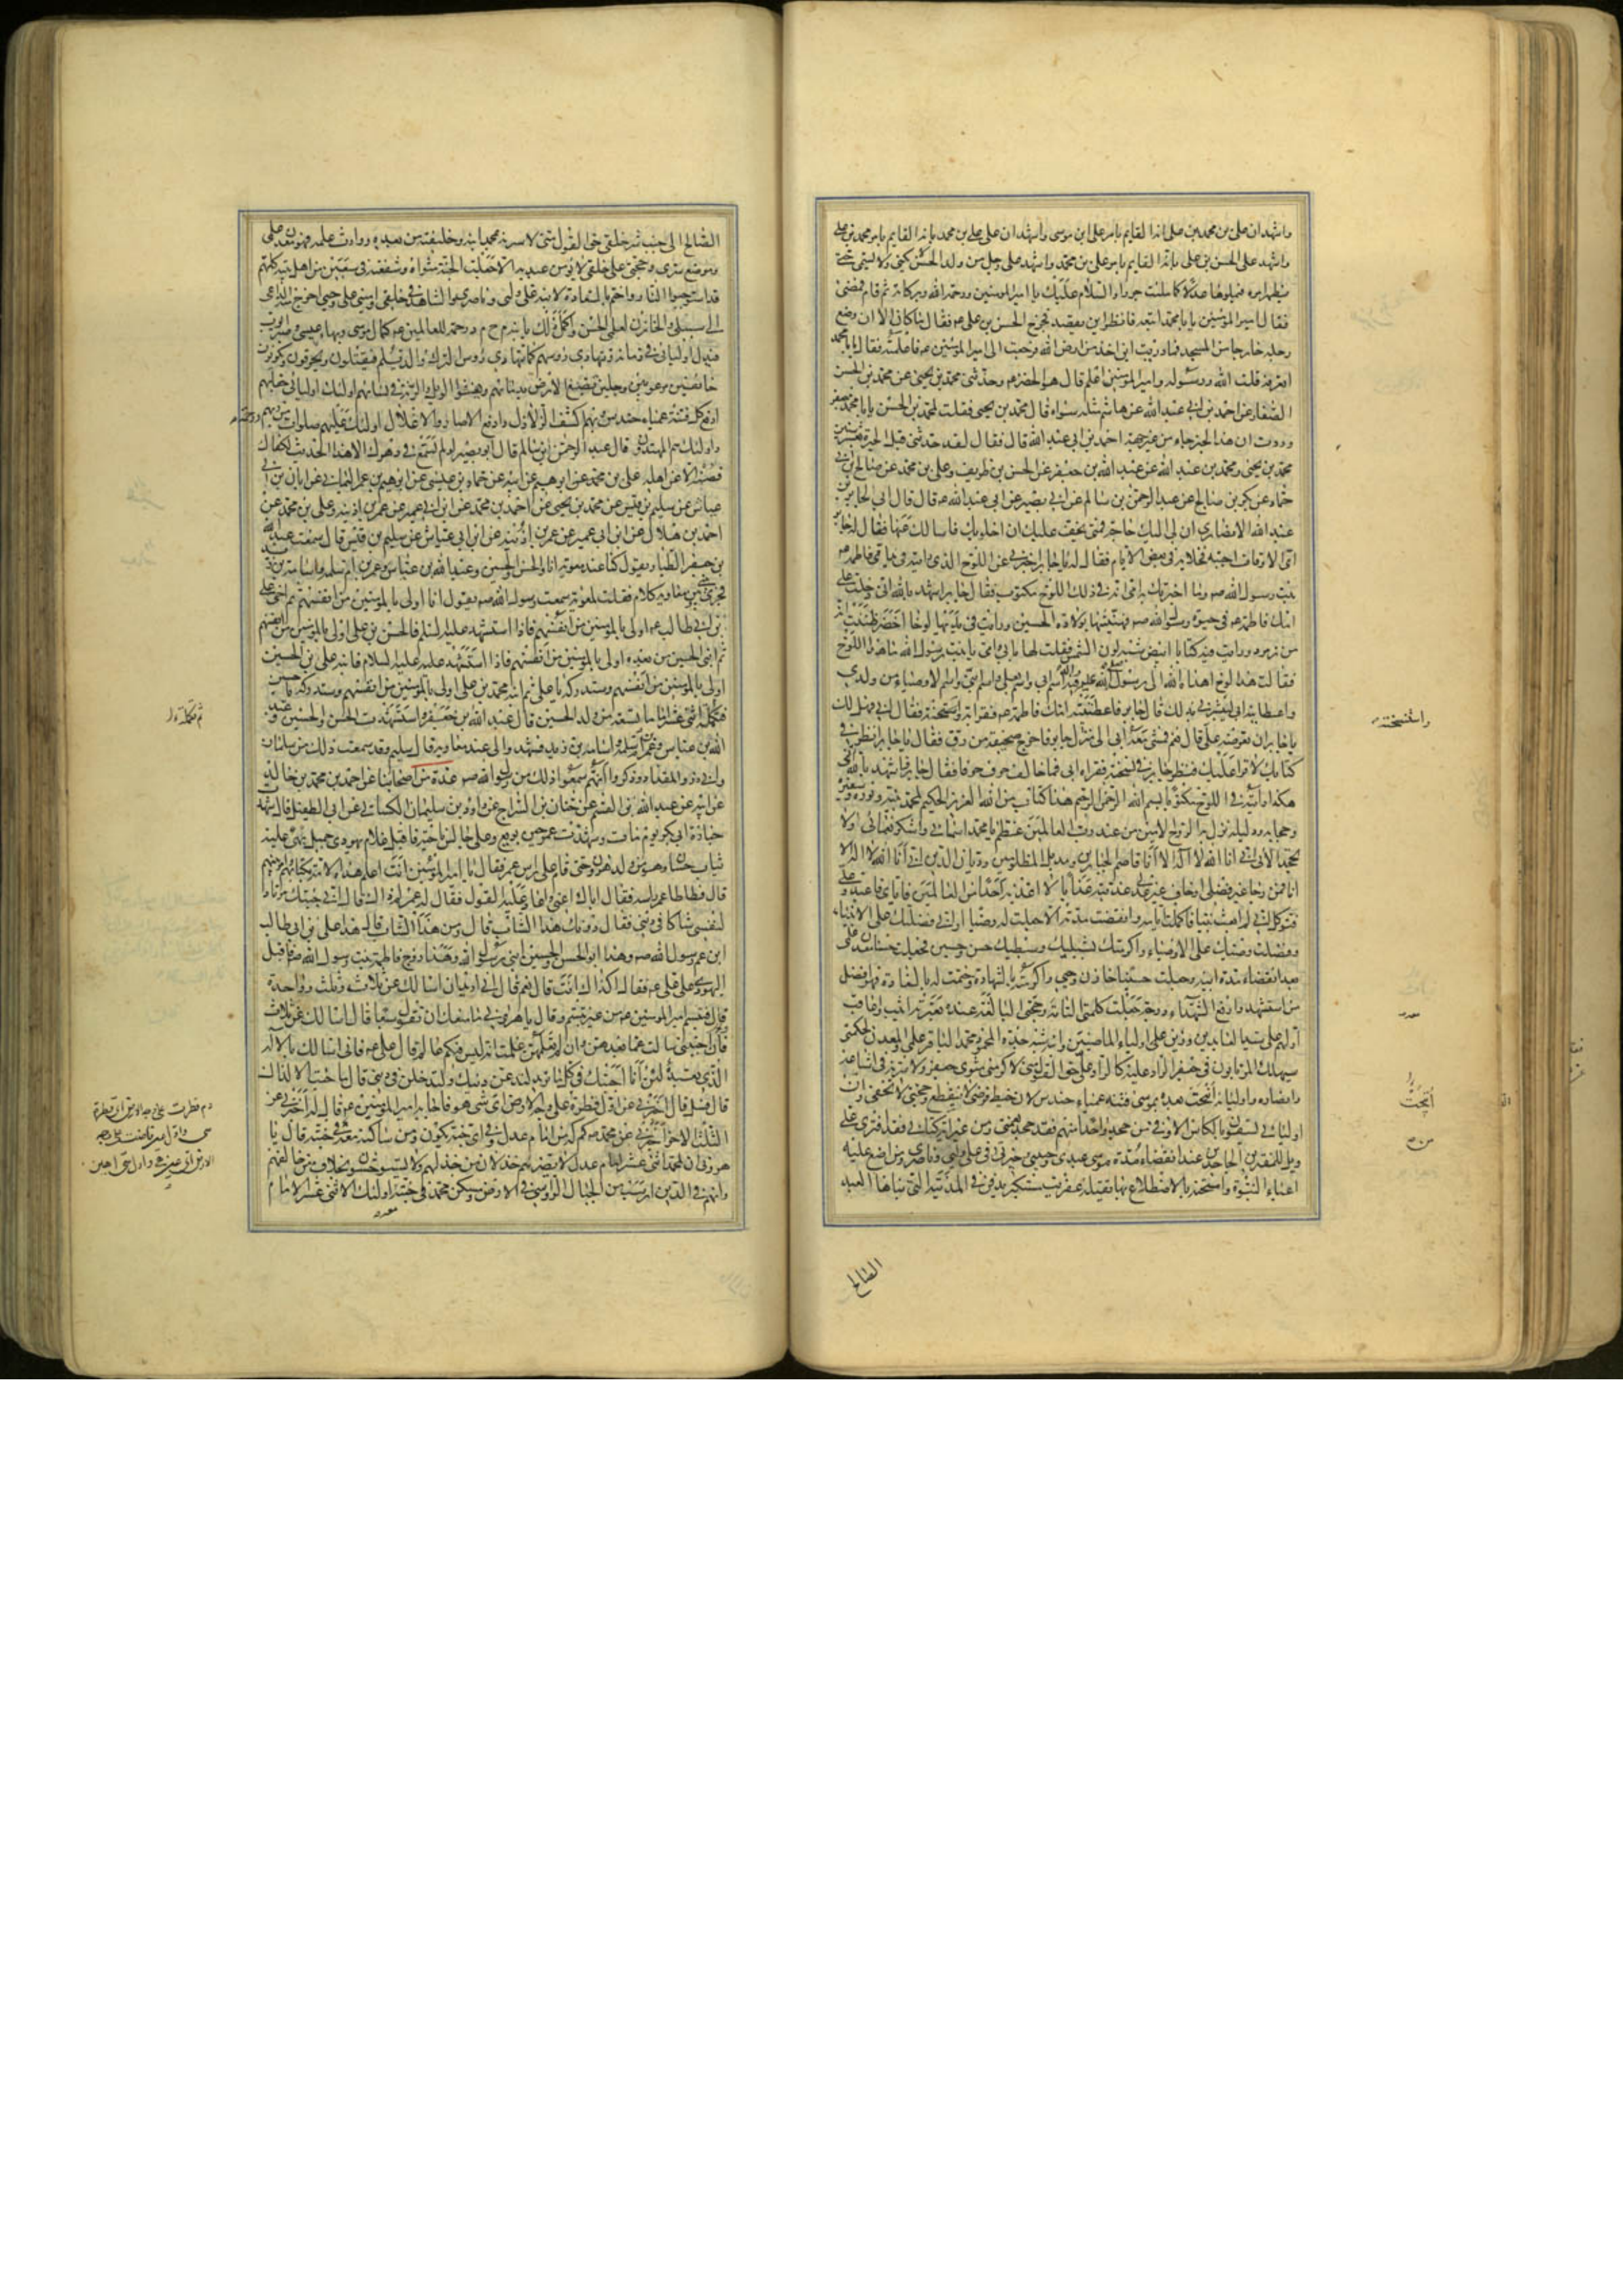 واشهد ان علی بن محمد بن علی انه القایم بامر علی ابن موسی واشهد ان علی علی بن محمد بانه القایم بامر محمد بن علی
واشهد علی الحسن بن علی بانه القایم بامر علی بن محمد واشهد علی رجل من ولد الحسن لا یکنی ولا یسمی حتی
یظهر امره فیملوها عدلا کما ملئت جورا والسلام علیک یا امیر المومنین ورحمة الله وبرکاته ثم قام فمضی
فقال امیر المومنین یا با محمد اتبعه فانظر این یقصد فخرج الحسن بن علی عم فقال ما کان الا ان وضع
رجله خارجا من المسجد فما دریت این اخذ من ارض الله فرجعت الی امیر المومنین عم فاعلمته فقال یا با محمد
اتعرفه قلت الله ورسوله وامیر المومنین اعلم قال هو الخضر عم وحدثنی محمد بن یحیی عن محمد بن الحسن
الصفار عن احمد بن ابی عبد الله عن هاشم مثله سواء قال محمد بن یحیی فقلت لمحمد بن الحسن یا با جعفر
وددت ان هذا الخبر جاء من غیر جهة احمد بن ابی عبد الله قال فقال لقد حدثنی قبل الحیرة بعشر سنین
محمد بن یحیی ومحمد بن عبد الله عن عبد الله بن جعفر عن الحسن بن ظریف وعلی بن محمد عن صالح بن ابی
حماد عن بکر بن صالح عن عبد الرحمن بن سالم عن ابی بصیر عن ابی عبد الله عم قال قال ابی لجابر بن
عبد الله الانصاری ان لی الیک حاجة فمتی یخف علیک ان اخلو بک فاسالک عنها فقال له جابر
ای الاوقات احببته فخلا به فی بعض الایام فقال له یا جابر اخبرنی عن اللوح الذی رایته فی ید امی فاطمة عم
بنت رسول الله صم وما اخبرتک به امی انه فی ذلک اللوح مکتوب فقال جابر اشهد بالله انی دخلت علی
امک فاطمة عم فی حیوة رسول الله صم فهنیتها بولادة الحسین ورایت فی یدیها لوحا اخضر ظننت انه
من زمرد ورایت فیه کتابا ابیض شبه لون الشمس فقلت لها بابی وامی یا بنت رسول الله ما هذا اللوح
فقالت هذا لوح اهداه الله الی رسول الله فیه اسم ابی واسم بعلی واسم ابنی واسم الاوصیاء من ولدی
واعطانیه ابی لیبشرنی بذلک قال جابر فاعطتنیه امک فاطمة عم فقراته واستنسخته فقال له ابی فهل لک
یا جابر ان تعرضه علی قال نعم فمشی معه ابی الی منزل جابر فاخرج صحیفة من رق فقال یا جابر انظر فی
کتابک لاقرا علیک فنظر جابر فی نسخته فقراه ابی فما خالف حرف حرفا فقال جابر فاشهد بالله انی
هکذا رایته فی اللوح مکتوبا بسم الله الرحمن الرحیم هذا کتاب من الله العزیز الحکیم لمحمد نبیه ونوره وسفیره
وحجابه ودلیله نزل به الروح الامین من عند رب العالمین عظم یا محمد اسمائی واشکر نعمائی ولا
تجحد الائی انی انا الله لا اله الا انا قاصم الجبارین ومدیل المظلومین ودیان الدین انی انا الله لا اله الا
انا فمن رجا غیر فضلی او خاف غیر عدلی عذبته عذابا لا اعذبه احدا من العالمین فایای فاعبد وعلی
فتوکل انی لم ابعث نبیا فاکملت ایامه وانقضت مدته الا جعلت له وصیا وانی فضلتک علی الانبیاء
وفضلت وصیک علی الاوصیاء واکرمتک بشبلیک وسبطیک حسن وحسین فجعلت حسنا معدن علمی
بعد انقضاء مدة ابیه وجعلت حسینا خازن وحیی واکرمته بالشهادة وختمت له بالسعادة فهو افضل
من استشهد وارفع الشهداء درجة جعلت کلمتی التامة وحجتی البالغة عنده بعترته اثیب واعاقب
اولهم علی سید العابدین وزین علی اولیاء الماضین وابنه شبه جده المحمود محمد الباقر علمی والمعدن لحکمتی
سیهلک المرتابون فی جعفر الراد علیه کالراد علی حق القول منی لاکرمن مثوی جعفر ولاسرنه فی اشیاعه
وانصاره واولیائه اتحت بعده بموسی فتنة عمیاء حندس لان خیط فرضی لا ینقطع وحجتی لا تخفی وان
اولیائی یسقون بالکاس الاوفی من جحد واحدا منهم فقد جحد نعمتی ومن غیر ایة من کتابی فقد افتری علی
ویل للمفترین الجاحدین عند انقضاء مدة موسی عبدی وحبیبی وخیرتی فی علی ولیی وناصری ومن اضع علیه
اعباء النبوة وامتحنه بالاضطلاع بها یقتله عفریت مستکبر یدفن فی المدینة التی بناها العبد
الصالح
واستنسخته
اتحت
الصالح الی جنب شر خلقی حق القول منی لاسرنه بمحمد ابنه وخلیفته من بعده ووارث علمه فهو معدن علمی
وموضع سری وحجتی علی خلقی لا یومن عبد به الا جعلت الجنة مثواه وشفعته فی سبعین من اهل بیته کلهم
قد استوجبوا النار واختم بالسعادة لابنه علی ولیی وناصری والشاهد فی خلقی وامینی علی وحیی اخرج منه الداعی
الی سبیلی والخازن لعلمی الحسن واکمل ذلک بابنه م ح م د رحمة للعالمین علیه کمال موسی وبهاء عیسی وصبر ایوب
فیذل اولیائی فی زمانه وتهادی رؤسهم کما تهادی رؤس الترک والدیلم فیقتلون ویحرقون ویکونون
خائفین مرعوبین وجلین تصبغ الارض بدمائهم ویفشوا الویل والرنة فی نسائهم اولئک اولیائی حقا بهم
ادفع کل فتنة عمیاء حندس وبهم اکشف الزلازل وادفع الاصار والاغلال اولئک علیهم صلوات من ربهم ورحمة
واولئک هم المهتدون قال عبد الرحمن ابن سالم قال ابو بصیر لو لم تسمع فی دهرک الا هذا الحدیث لکفاک
فصنه الا عن اهله علی بن محمد عن ابرهیم عن ابیه عن حماد بن عیسی عن ابرهیم بن عمر الیمانی عن ابان بن ابی
عیاش عن سلیم بن قیس عن محمد بن یحیی عن احمد بن محمد عن ابن ابی عمیر عن عمر بن اذینه وعلی بن محمد عن
احمد بن هلال عن ابن ابی عمیر عن عمر بن اذینه عن ابن ابی عیاش عن سلیم بن قیس قال سمعت عبد الله
بن جعفر الطیار یقول کنا عند معویة انا والحسن والحسین وعبد الله بن عباس وعمر بن ام سلمه واسامة بن زید
فجری بینی وبین معاویه کلام فقلت لمعویة سمعت رسول الله صم یقول انا اولی بالمومنین من انفسهم ثم اخی علی
بن ابی طالب عم اولی بالمومنین من انفسهم فاذا استشهد علی فالحسن بن علی اولی بالمومنین من انفسهم
ثم ابنی الحسین من بعده اولی بالمومنین من انفسهم فاذا استشهد علیه السلام فابنه علی بن الحسین
اولی بالمومنین من انفسهم وستدرکه یا علی ثم ابنه محمد بن علی اولی بالمومنین من انفسهم وستدرکه یا حسین
تکمله اثنی عشر اماما تسعة من ولد الحسین قال عبد الله بن جعفر واستشهدت الحسن والحسین وعبد
الله بن عباس وعمر بن ام سلمه واسامة بن زید فشهدوا لی عند معاویه قال سلیم وقد سمعت ذلک من سلمان
وابی ذر والمقداد وذکروا انهم سمعوا ذلک من رسول الله صم عدة من اصحابنا عن احمد بن محمد بن خالد
عن ابیه عن عبد الله بن القسم عن حنان بن السراج عن داود بن سلیمان الکسائی عن ابی الطفیل قال شهدت
جنازة ابی بکر یوم مات وشهدت عمر حین بویع وعلی جالس ناحیة فاقبل غلام یهودی جمیل بهی علیه
ثیاب حسان وهو من ولد هرون حتی قام علی راس عمر فقال یا امیر المؤمنین انت اعلم هذه الامة بکتابهم وامر نبیهم
قال فطاطا عمر راسه فقال ایاک اعنی واعاد علیه القول فقال له عمر لم ذاک قال انی جئتک مرتادا
لنفسی شاکا فی دینی فقال دونک هذا الشاب قال ومن هذا الشاب قال هذا علی بن ابی طالب
ابن عم رسول الله صم وهذا ابو الحسن والحسین ابنی رسول الله وهذا زوج فاطمة بنت رسول الله صم فاقبل
الیهودی علی علی عم فقال اکذاک انت قال نعم قال انی ارید ان اسالک عن ثلاث وثلث وواحدة
قال فتبسم امیر المومنین عم من غیر تبسم وقال یا هرونی ما منعک ان تقول سبعا قال اسالک عن ثلاث
فان اجبتنی سالت عما بعدهن وان لم تعلمهن علمت انه لیس فیکم عالم قال علی عم فانی اسالک بالاله
الذی تعبده لئن انا اجبتک فی کل ما ترید لتدعن دینک ولتدخلن فی دینی قال ما جئت الا لذاک
قال فسل قال اخبرنی عن اول قطرة علی وجه الارض ای شی هو فاجابه امیر المومنین عم فقال له اخبرنی عن
الثلث الاخر اخبرنی عن محمد صم کم له من امام عدل وفی ای جنة یکون ومن ساکنه معه فی جنته قال یا
هرونی ان لمحمد اثنی عشر امام عدل لا یضرهم خذلان من خذلهم ولا یستوحشون بخلاف من خالفهم
وانهم فی الدین ارسب من الجبال الرواسی فی الارض ومسکن محمد فی جنته اولئک الاثنی عشر الامام